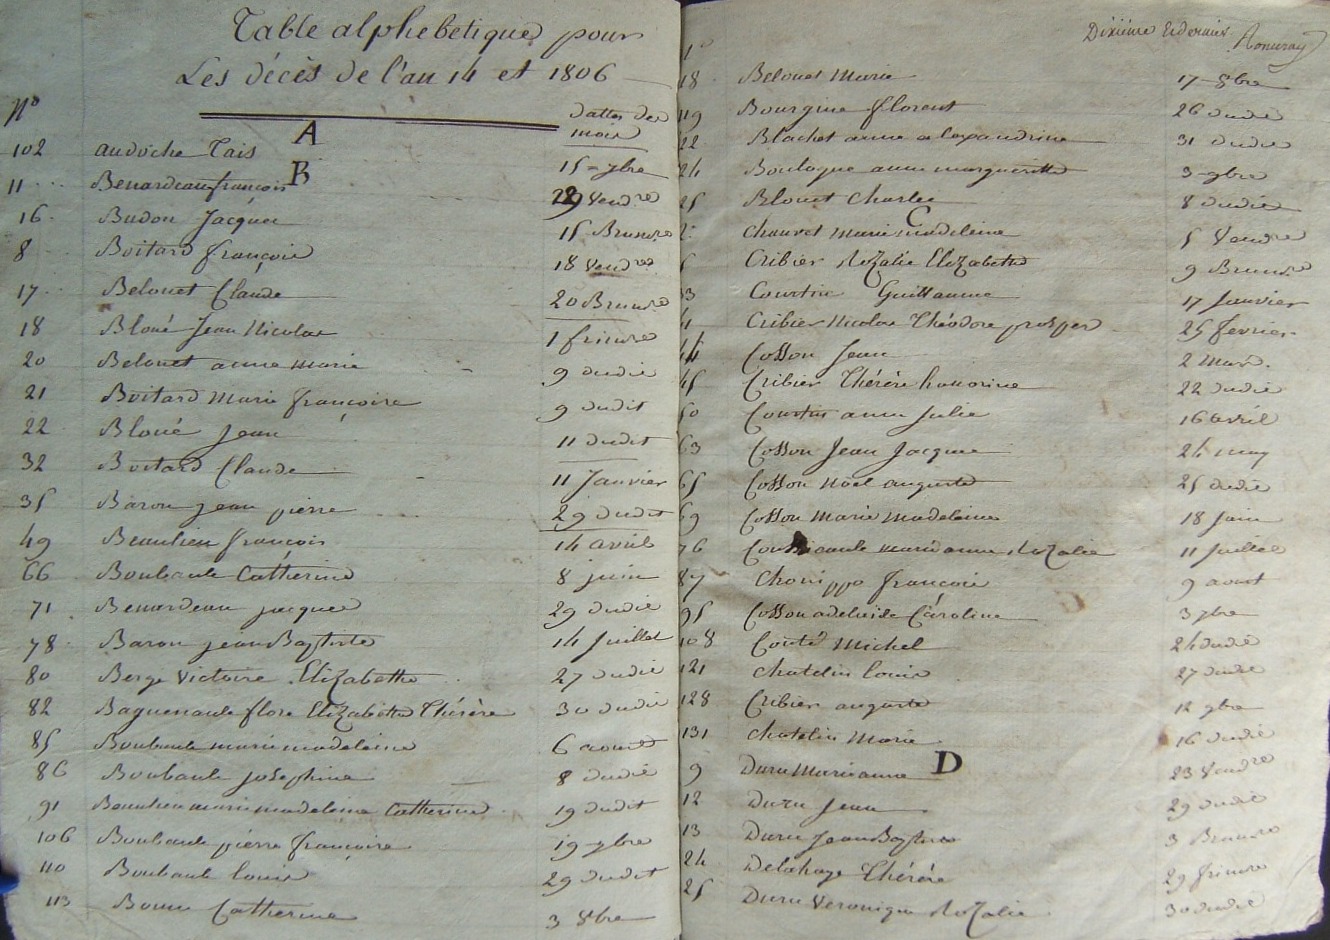 Table alphebetique pour
Les décès de l'an 14 et 1806
N° dattes des
mois
A
102 audoche Tais 15 7bre
B
11 Benardeau françois 29 Vendre
16 Budon Jacques 15 Brumre
8 Boitard françois 18 Vendre
17 Belouet Claude 20 Brumre
18 Bloué Jean Nicolas 1 frimre
20 Belouet anne marie 9 dudit
21 Boitard Marie françoise 9 dudit
22 Bloué Jean 11 dudit
32 Boitard Claude 11 Janvier
35 Baron jean pierre 29 dudit
49 Beaulieu françois 14 avril
66 Boubault Catherine 8 juin
71 Benardeau jacques 29 dudit
78 Baron jean Baptiste 14 Juillet
80 Berge Victoire Elizabethe 27 dudit
82 Baguenault flore Elizabethe Thérère 30 dudit
85 Boubault marie madeleine 6 aoust
86 Boubault josephine 8 dudit
91 Beaulieu marie madeleine Catherine 19 dudit
106 Boubault pierre françoise 19 7bre
110 Boubault louis 29 dudit
113 Catherine 3 8bre
Dixiéme et dernier
18 Belouet Marie 17 8bre
119 Bourgine florent 26 dudit
22 Blachet anne alexandrine 31 dudit
24 Boulogne anne margueritte 3 9bre
25 Blouet Charles 8 dudit
C
2 Chauvet marie madeleine 5 Vendre
5 Cribier Rozalie Elizabethe 9 Brumre
33 Courtin Guillaume 17 Janvier
41 Cribier Nicolas Théodore prosper 25 fevrier
44 Cosson Jean 2 mars
45 Cribier Thérère honorine 22 dudit
50 Courtin anne Julie 16 avril
63 Cosson Jean Jacques 24 may
65 Cosson Noël auguste 25 dudit
69 Cosson marie madeleine 18 Juin
76 marie anne Rozalie 11 Juillet
87 Chouippe françois 9 aoust
95 Cosson adelaïde Caroline 3 7bre
108 Couté Michel 24 dudit
121 chatelin louis 27 dudit
128 Cribier auguste 12 9bre
131 chatelin Marie 16 dudit
D
9 Duru Marie anne 23 Vendre
12 Duru Jean 29 dudit
13 Duru Jean Baptiste 3 Brumre
24 Delahaye Thérère 29 frimre
25 Duru Veronique Rozalie 30 dudit